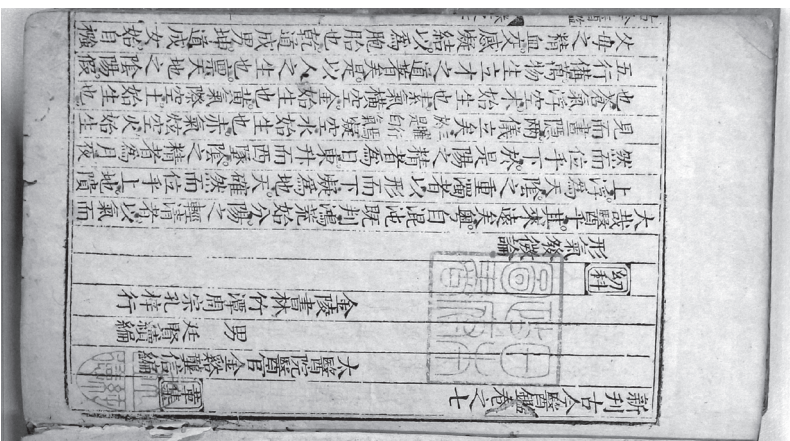 新刊古今醫鑑卷之七
太醫院醫官金谿龔信編
男 廷賢續編
金陵書林竹潭周宗孔梓行
幼科
形氣發微論
大哉醫乎其來遠矣粵自混沌既判鴻荒始分陽之輕清者以氣而
上浮爲天陰之重濁者以形而下凝爲地天確然而位乎上地隤
然而位乎下於是陽之精者爲日東升而西墜陰之精者爲月夜
見而晝隱兩儀立矣於是玄氣凝空水始生也赤氣炫空火始生
也蒼氣浮空木始生也素氣橫空金始生也黅氣際空土始生也
五行備萬物生三才之道著矣是以人之生也稟天地之陰陽假
父母之精血交感凝結以爲胞胎也乾道成男坤道成女始自襁